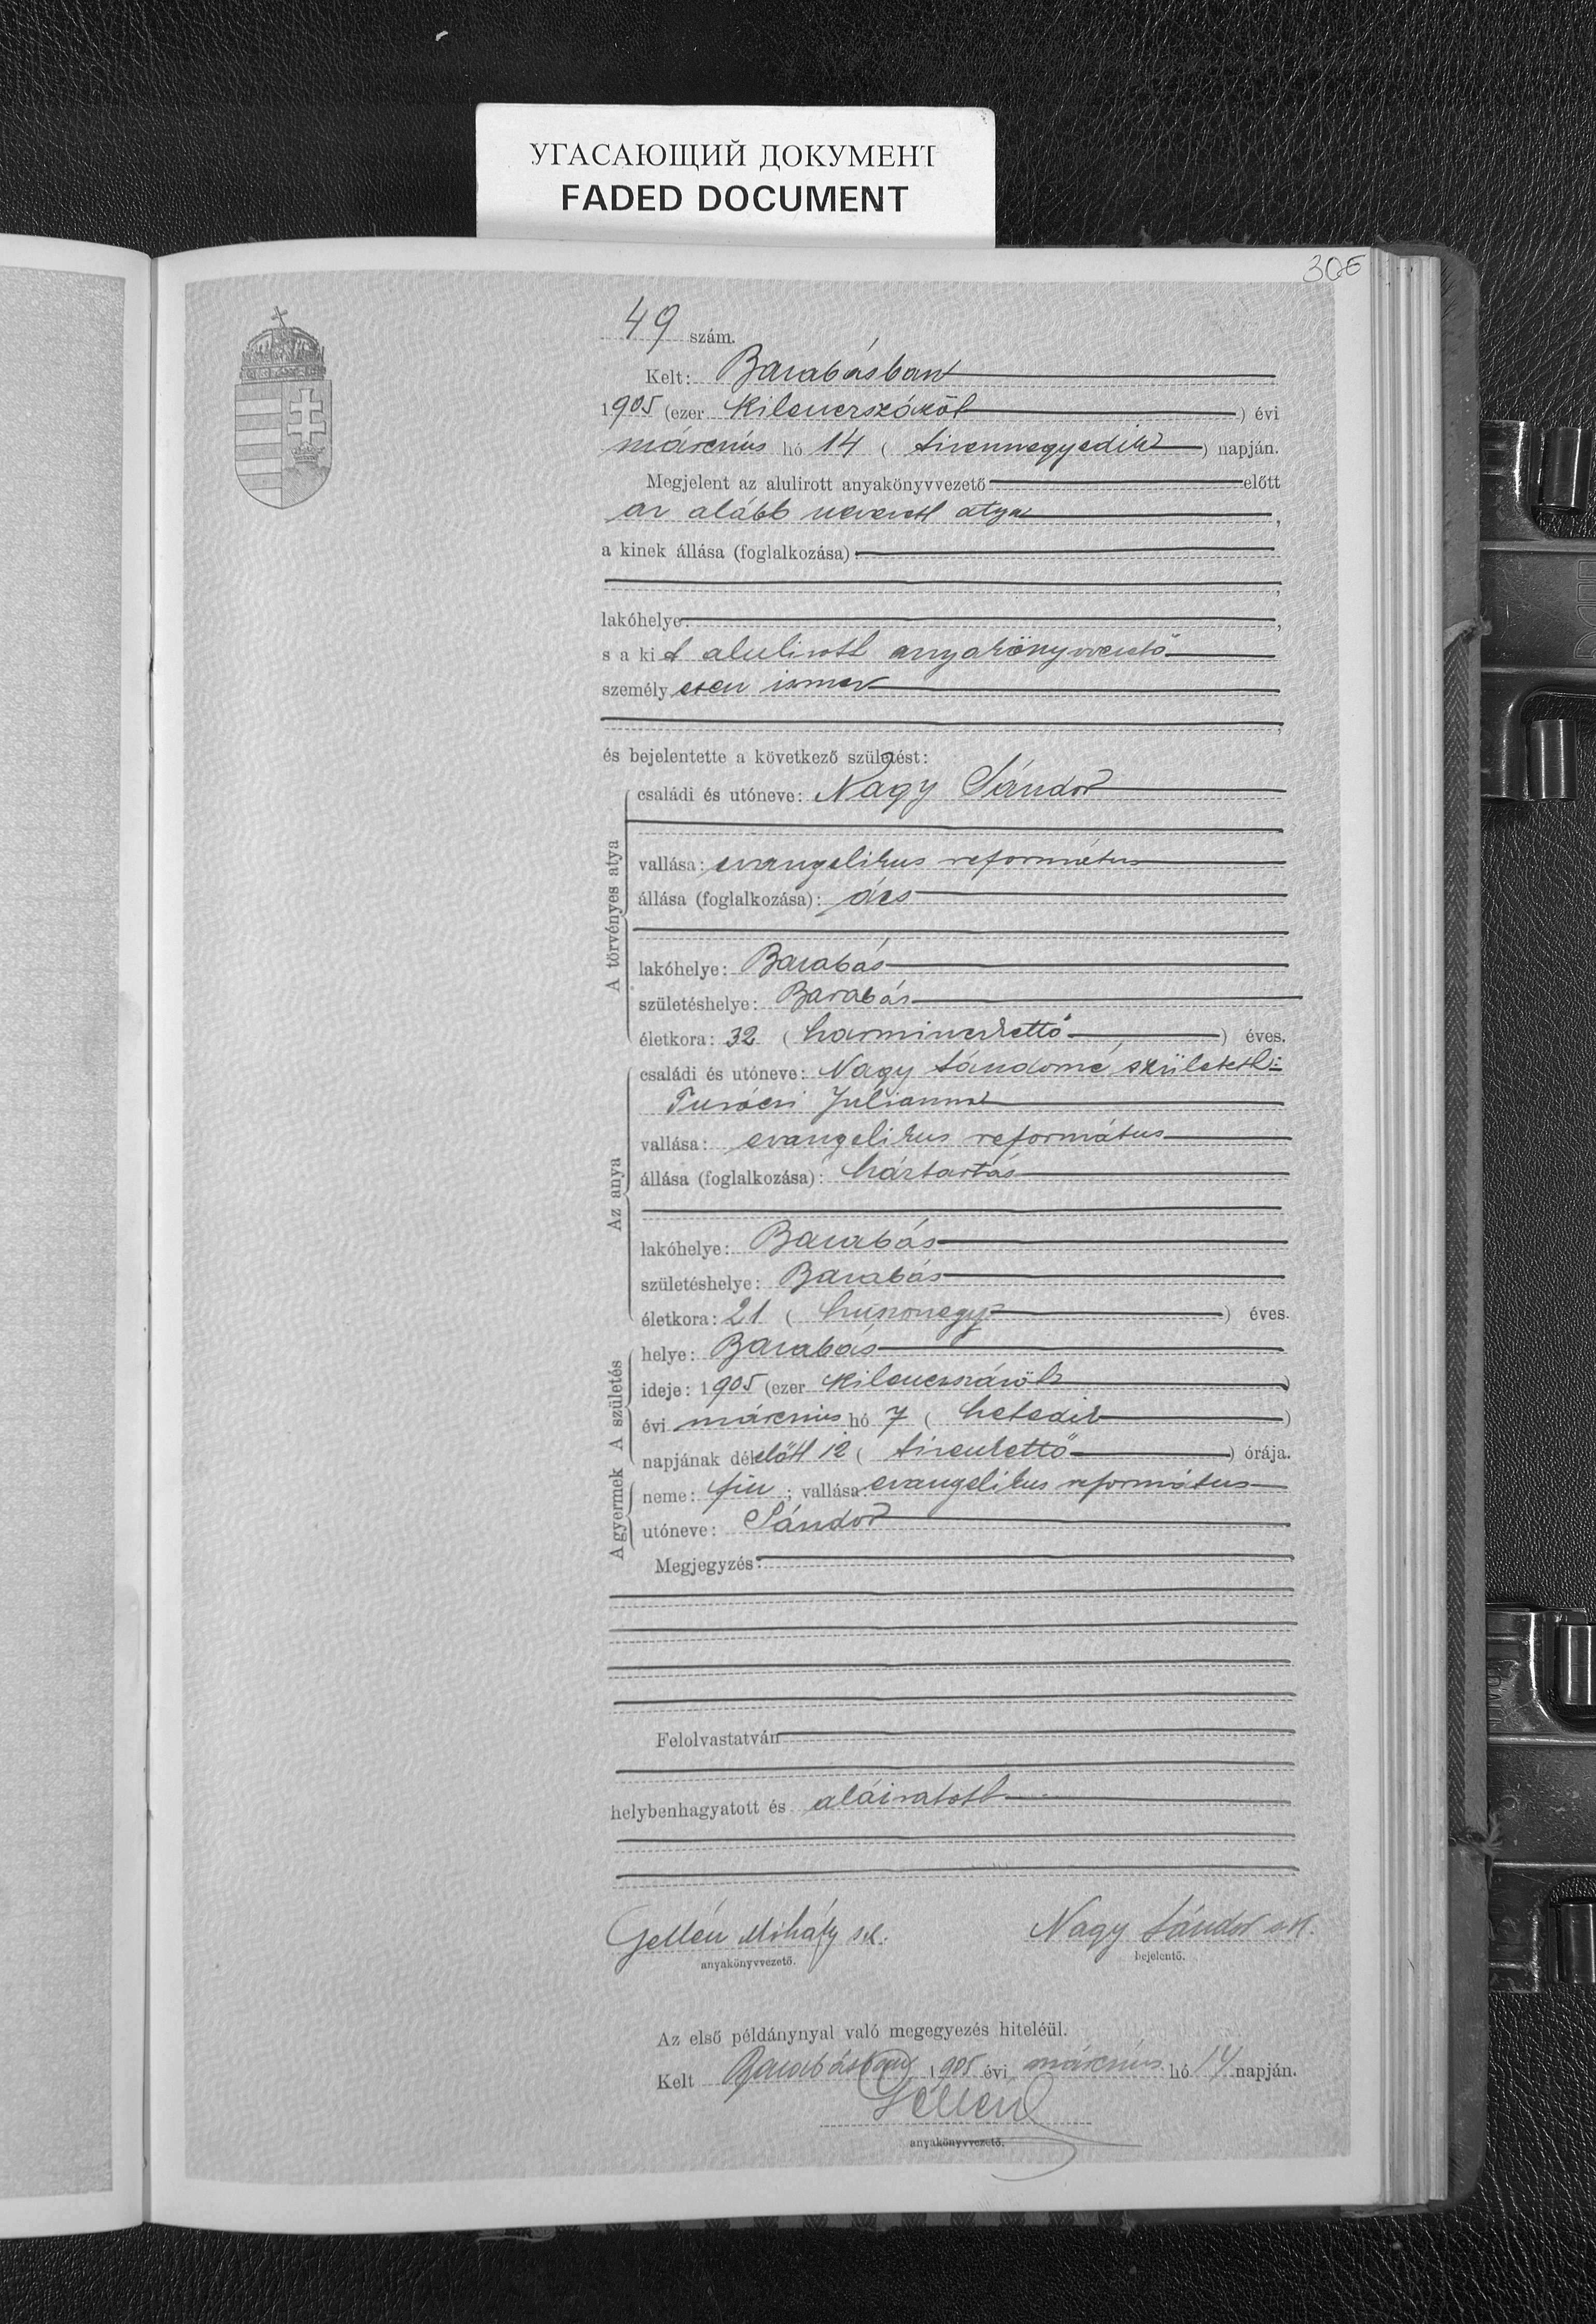 УГАСАЮЩИЙ ДОКУМЕНТ
FADED DOCUMENT
306
49 szám.
Kelt: Barabásban
1905 (ezer kilencszázöt) évi
márczius hó 14 (tizennegyedik) napján.
Megjelent az alulirott anyakönyvvezető előtt
az alább nevezett atya,
a kinek állása (foglalkozása)
lakóhelye:
s a kit alulirott anyakönyvvezető
személyesen ismer
és bejelentette a következő születést:
A törvényes atya
családi és utóneve: Nagy Sándor
vallása: evangelikus református
állása (foglalkozása): ács
lakóhelye: Barabás
születéshelye: Barabás
életkora: 32 (harminczkettő) éves.
Az anya
családi és utóneve: Nagy Sándorné, született:
Turóczi Julianna
vallása: evangelikus református
állása (foglalkozása): háztartás
lakóhelye: Barabás
születéshelye: Barabás
életkora: 21 (huszonegy) éves.
A születés
helye: Barabás
ideje: 1905 (ezer kilenczszázöt)
évi márczius hó 7 (hetedik)
napjának délelőtt 12 (tizenkettő) órája.
A gyermek
neme: fiu; vallása: evangelikus református
utóneve: Sándor
Megjegyzés:
Felolvastatván
helybenhagyatott és aláiratott
Gellén Mihály sk. Nagy Sándor s.k.
anyakönyvvezető. bejelentő.
Az első példánynyal való megegyezés hiteléül.
Kelt Barabásban 1905 évi márczius hó 14 napján.
Gellén
anyakönyvvezető.